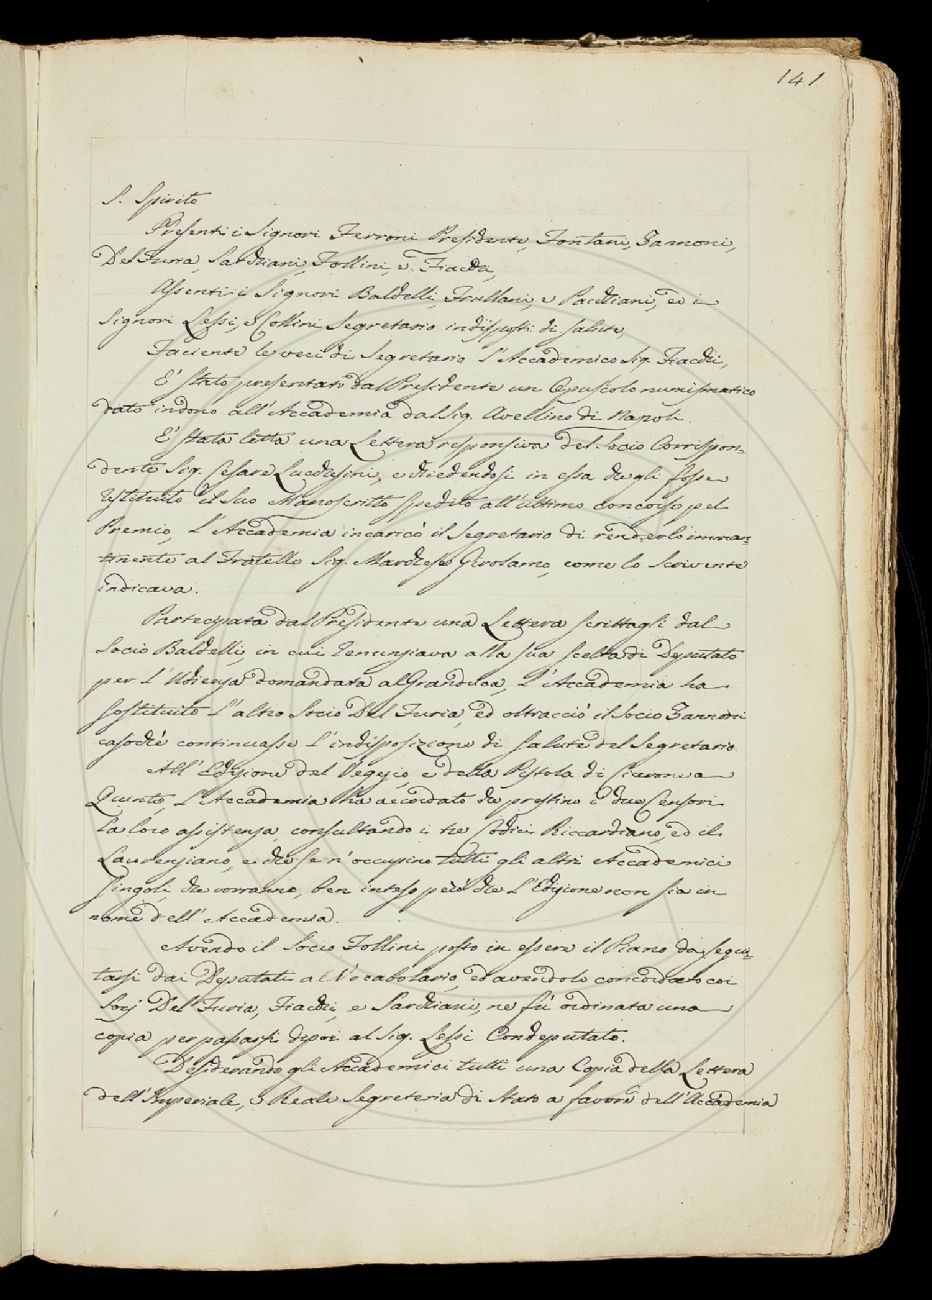 141
S. Spirito
Presenti i Signori Ferroni Presidente, Fontani, Zannoni,
Del Furia, Sarchiani, Follini, e Fiacchi,
Assenti i Signori Baldelli, Frullani, e Pacchiani, ed i
Signori Lessi, e Collini Segretario indisposti di salute,
Faciente le veci di Segretario l'Accademico Sig. Fiacchi,
E' stato presentato dal Presidente un Opuscolo numismatico
dato in dono all'Accademia dal Sig. Avellino di Napoli.
E' stata letta una Lettera responsiva del Socio Corrispon=
dente Sig. Cesare Lucchesini, e chiedendosi in essa che gli fosse
restituito il suo Manoscritto spedito all'ultimo concorso pel
Premio, l'Accademia incaricò il Segretario di renderlo imman=
tinente al Fratello Sig. Marchese Girolamo, come lo Scrivente
indicava.
Partecipata dal Presidente una Lettera scrittagli dal
Socio Baldelli, in cui renunziava alla sua scelta di Deputato
per l'Udienza domandata al Granduca, l'Accademia ha
sostituito l'altro Socio Del Furia, ed oltracciò il Socio Zannoni
casochè continuasse l'indisposizione di salute del Segretario.
All'Edizione del Vegezio, e della Pistola di Cicerone a
Quinto, l'Accademia ha accordato che prestino i due Censori
la loro assistenza consultando i tre Codici Riccardiano, ed il
Laurenziano, e che se n'occupino tutti gli altri Accademici
singoli, che vorranno, ben inteso però che l'Edizione non sia in
nome dell'Accademia.
Avendo il Socio Follini posto in essere il Piano da segui=
tarsi dai Deputati al Vocabolario, ed avendolo concordato coi
Socj Del Furia, Fiacchi, e Sarchiani, ne fù ordinata una
copia per passarsi dipoi al Sig. Lessi Condeputato.
Desiderando gli Accademici tutti una Copia della Lettera
dell'Imperiale, e Reale Segreteria di Stato a favore dell'Accademia